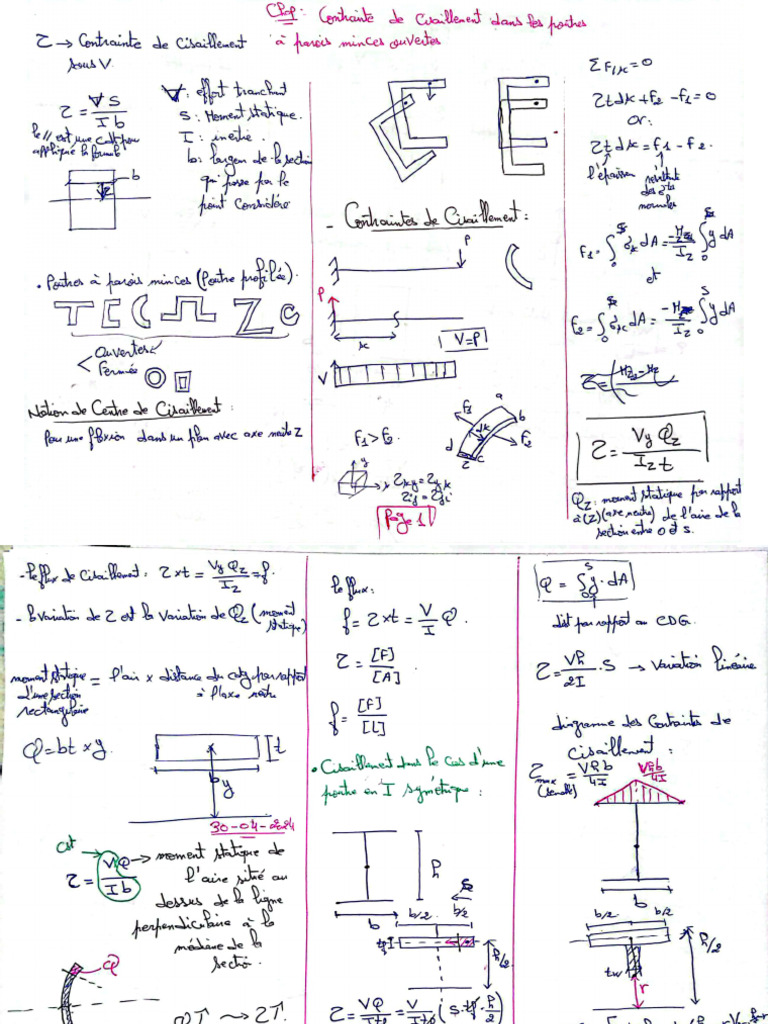 Chap : Contrainte de Cisaillement dans les poutres
à parois minces ouvertes
τ → Contrainte de Cisaillement
sous V.
τ = V S / I b
V : effort tranchant
S : Moment statique.
I : inertie.
b : largeur de la section
qui passe par le
point considéré
b
• Poutres à parois minces (Poutre profilée).
Ouvertes
Fermée
Notion de Centre de Cisaillement :
Pour une flexion dans un plan avec axe neutre Z
- Contraintes de Cisaillement :
P
P
x
V=P
V
F1 > F2
F1
a
b
dx
F2
d
c
τ
y
x
τxy = τyx
τij = τji
Page 1
Σ F/x = 0
τt dx + F2 - F1 = 0
or :
τt dx = F1 - F2.
l'épaisseur
résultant
des σtes
normales
F1 = ∫ σx dA = -Mz / Iz ∫ y dA
et
F2 = ∫ σx dA = -Mz / Iz ∫ y dA
τ = Vy Qz / Iz t
Qz : moment statique par rapport
à (Z) (axe neutre) de l'aire de la
section entre 0 et s.
- le flux de Cisaillement : τ×t = Vy Qz / Iz = f.
- la variation de τ est la variation de Qz (moment
statique)
moment statique = l'air × distance du cdg par rapport
d'une section à l'axe neutre
rectangulaire
Q = bt × y.
t
b
y
30-04-2024
cst
τ = VQ / I b
→ moment statique de
l'aire situé au
dessus de la ligne
perpendiculaire à la
médiane de la
section.
Q
Q↑ → τ↑.
le flux :
f = τ×t = V / I Q.
τ = [F] / [A].
f = [F] / [L]
• Cisaillement dans le cas d'une
poutre en I symétrique :
h
b
b/2
b/2
s
h/2
τ = VQ / I tf = V / I tf (s·tf·h/2)
Q = ∫ y·dA
dist par rapport au CDG
τ = Vh / 2I · S → variation linéaire
diagramme des Contraintes de
cisaillement :
τmax = Vhb / 4I
(semelle)
Vhb / 4I
b
b/2
b/2
tw
r
h/2